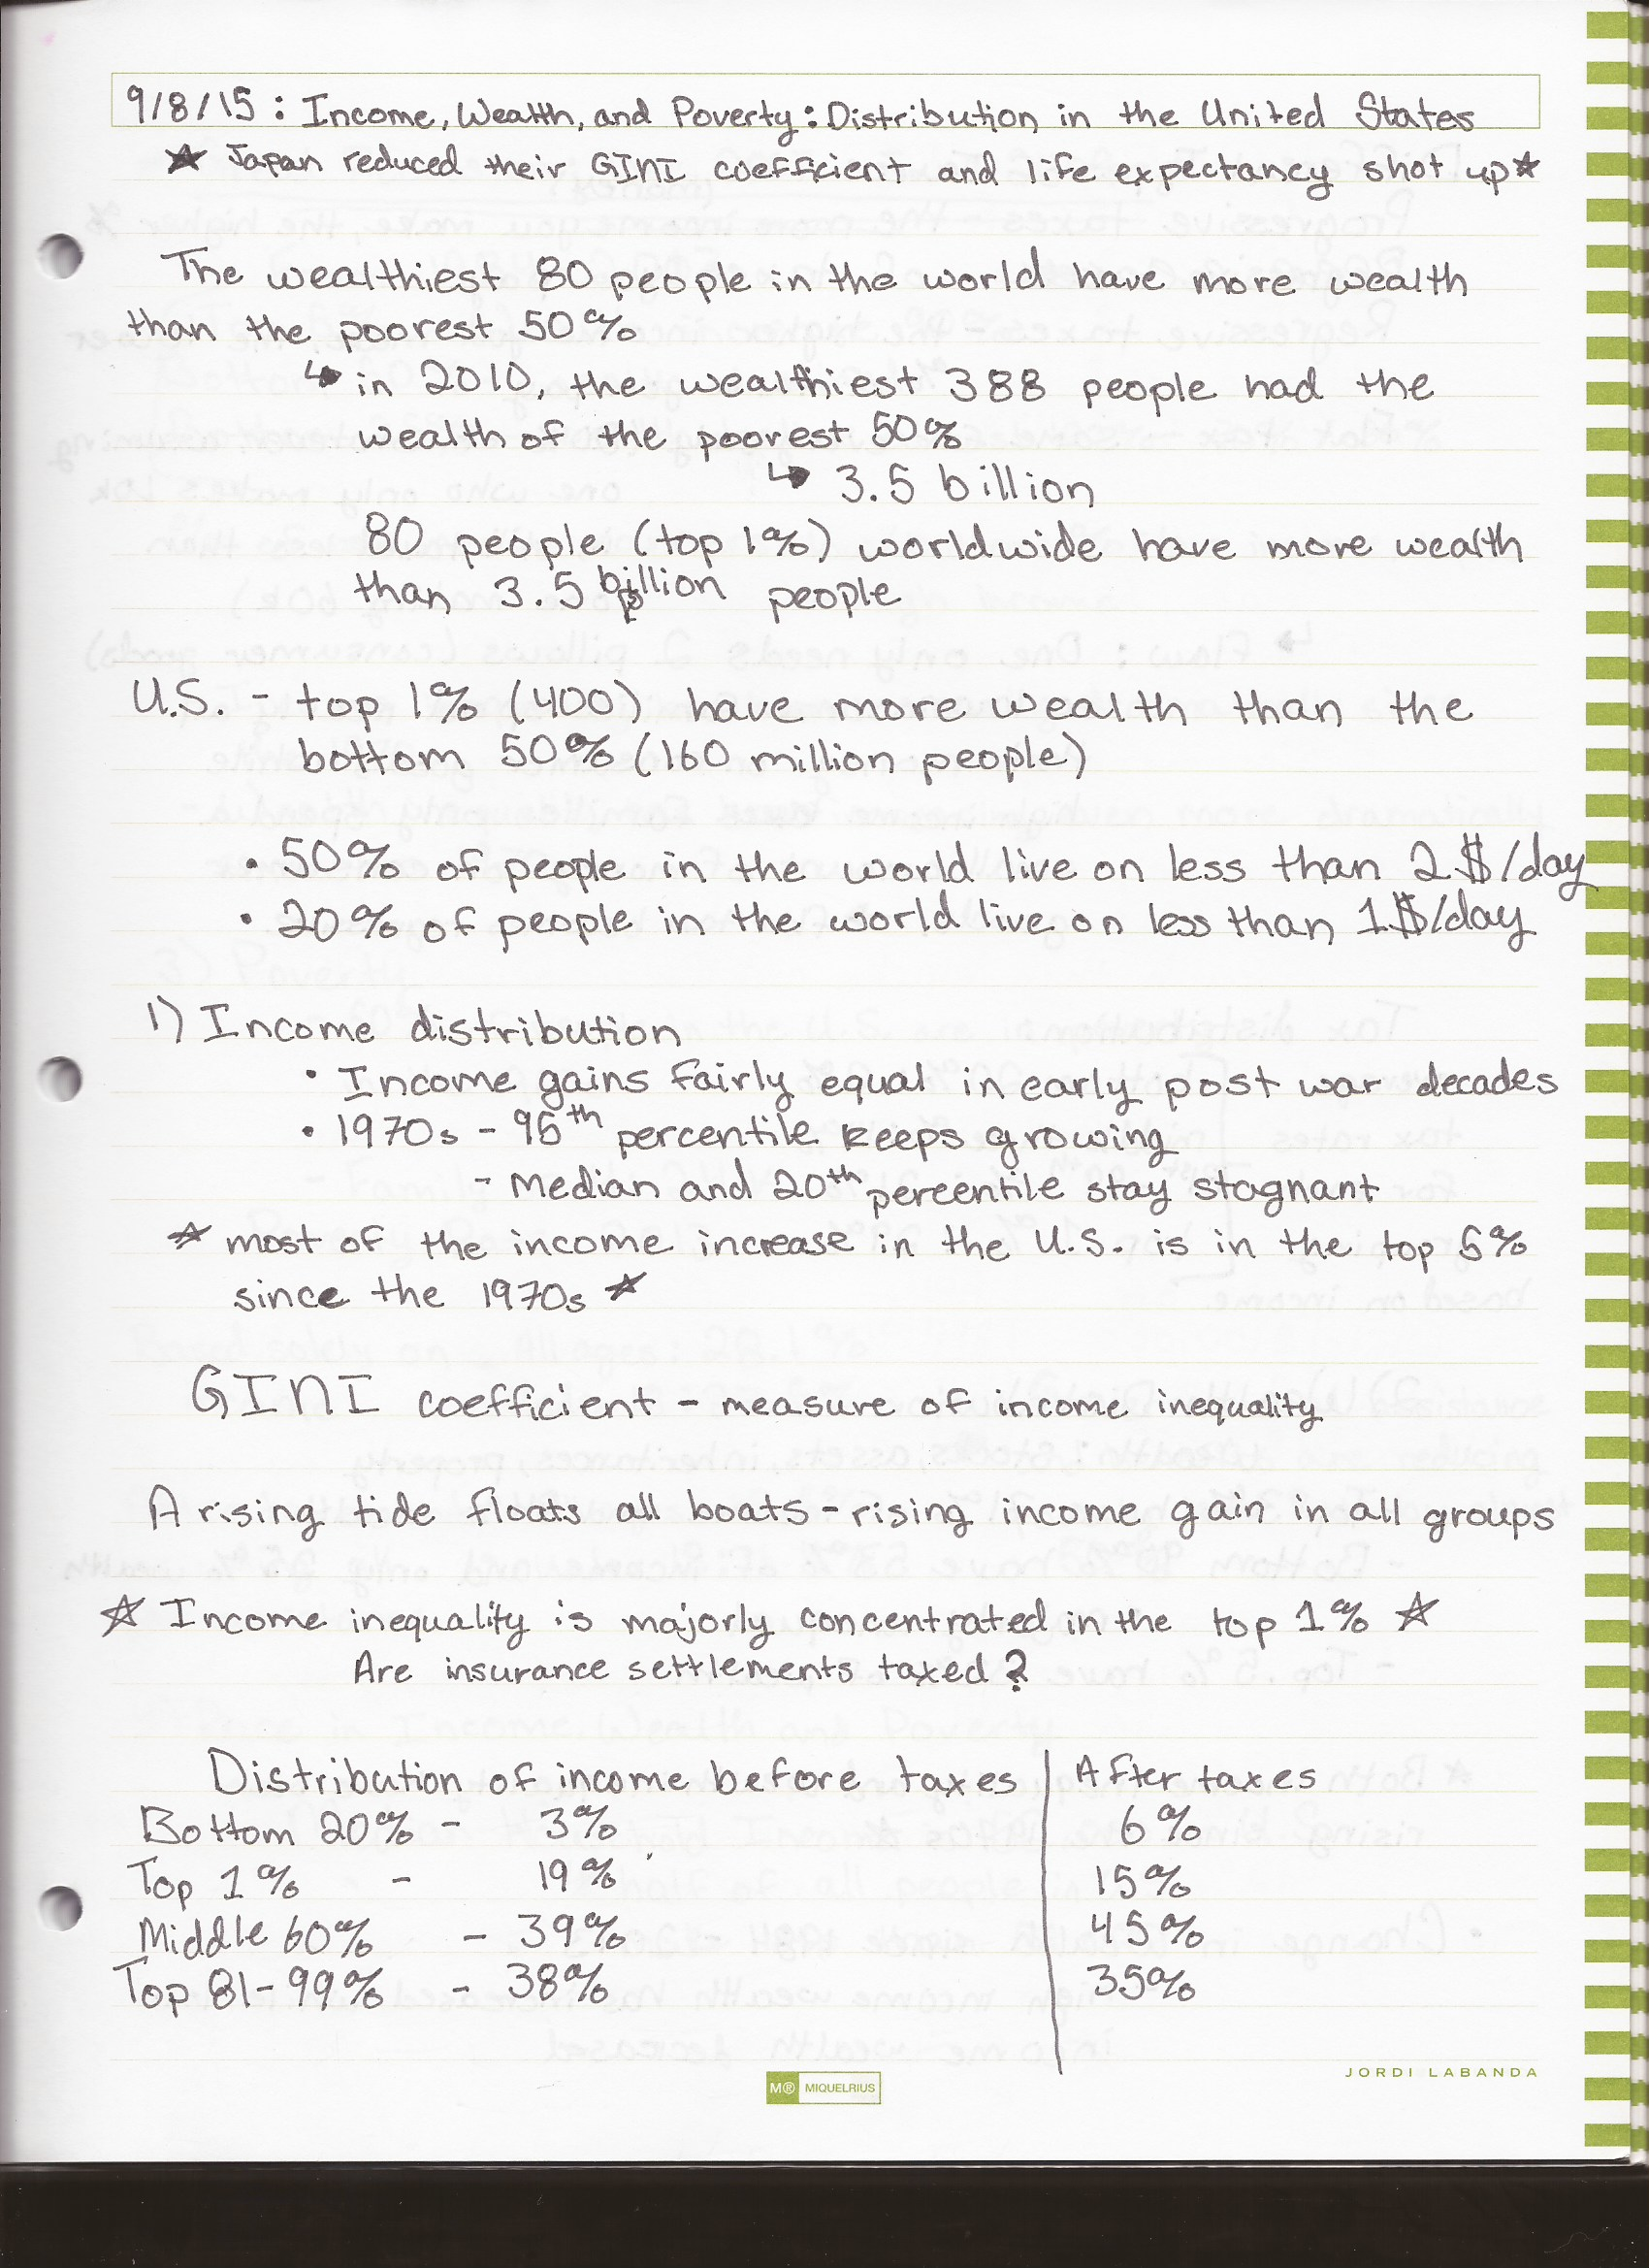 9/8/15: Income, Wealth, and Poverty: Distribution in the United States
☆ Japan reduced their GINI coefficient and life expectancy shot up☆
The wealthiest 80 people in the world have more wealth
than the poorest 50%
↳ in 2010, the wealthiest 388 people had the
wealth of the poorest 50%
↳ 3.5 billion
80 people (top 1%) worldwide have more wealth
than 3.5 billion people
U.S. - top 1% (400) have more wealth than the
bottom 50% (160 million people)
• 50% of people in the world live on less than 2$/day
• 20% of people in the world live on less than 1$/day
1) Income distribution
• Income gains fairly equal in early post war decades
• 1970s - 95th percentile keeps growing
- Median and 20th percentile stay stagnant
☆ most of the income increase in the U.S. is in the top 5%
since the 1970s ☆
GINI coefficient - measure of income inequality
A rising tide floats all boats - rising income gain in all groups
☆ Income inequality is majorly concentrated in the top 1% ☆
Are insurance settlements taxed?
Distribution of income before taxes | After taxes
Bottom 20% - 3% 6%
Top 1% - 19% 15%
Middle 60% - 39% 45%
Top 81-99% - 38% 35%
JORDI LABANDA
M® MIQUELRIUS